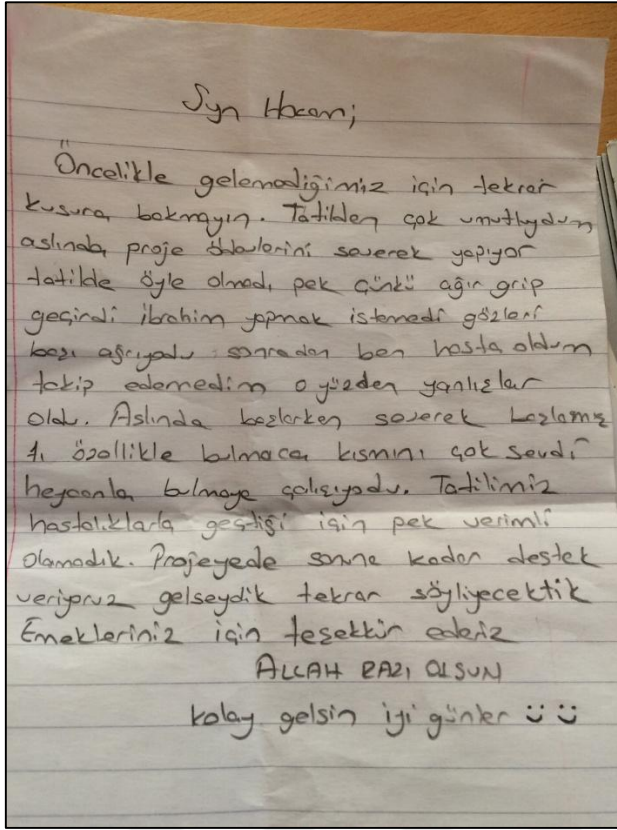 Syn Hocam;
Öncelikle gelemediğimiz için tekrar
kusura bakmayın. Tatilden çok umutluydum
aslında, proje ödevlerini severek yapıyor
tatilde öyle olmadı pek çünkü ağır grip
geçirdi ibrahim yapmak istemedi gözleri
başı ağrıyodu sonradan ben hasta oldum
takip edemedim o yüzden yanlışlar
oldu. Aslında başlarken severek başlamış
tı özellikle bulmaca kısmını çok sevdi
heycanla bulmaya çalışıyodu. Tatilimiz
hastalıklarla geçtiği için pek verimli
olamadık. Projeyede sonuna kadar destek
veriyoruz gelseydik tekrar söyliyecektik
Emekleriniz için teşekkür ederiz
ALLAH RAZI OLSUN
kolay gelsin iyi günler